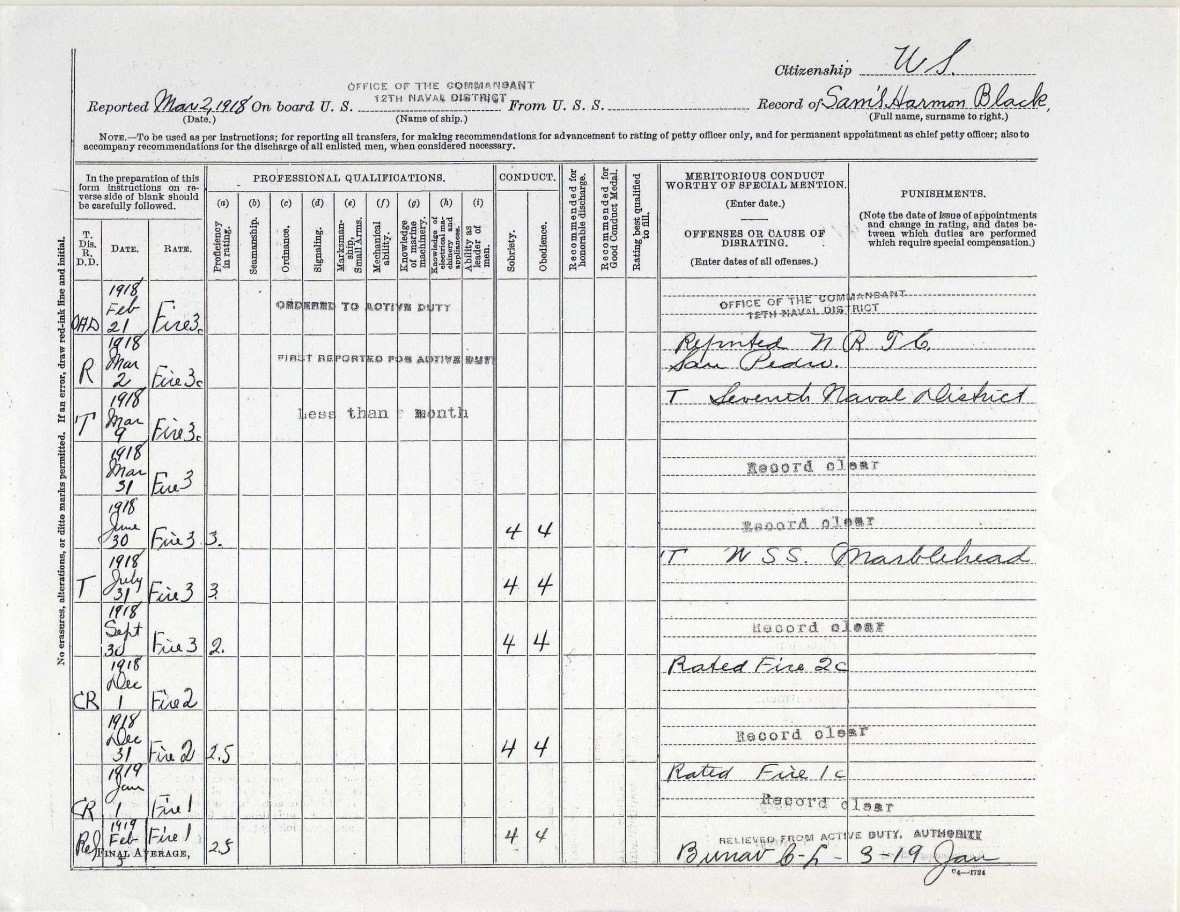 Citizenship U S.
OFFICE OF THE COMMANDANT
12TH NAVAL DISTRICT
Reported Mar 2, 1918 On board U. S. From U. S. S. Record of Sam'l Harmon Black,
(Date.) (Name of ship.) (Full name, surname to right.)
NOTE.—To be used as per instructions; for reporting all transfers, for making recommendations for advancement to rating of petty officer only, and for permanent appointment as chief petty officer; also to
accompany recommendations for the discharge of all enlisted men, when considered necessary.
No erasures, alterations, or ditto marks permitted. If an error, draw red-ink line and initial.
In the preparation of this
form instructions on re-
verse side of blank should
be carefully followed.
T.
Dis.
R.
D.D.
DATE.
RATE.
PROFESSIONAL QUALIFICATIONS.
(a) Proficiency in rating.
(b) Seamanship.
(c) Ordnance.
(d) Signaling.
(e) Marksmanship, Small Arms.
(f) Mechanical ability.
(g) Knowledge of marine machinery.
(h) Knowledge of electrical machinery and appliances.
(i) Ability as leader of men.
CONDUCT.
Sobriety.
Obedience.
Recommended for honorable discharge.
Recommended for Good Conduct Medal.
Rating best qualified to fill.
MERITORIOUS CONDUCT
WORTHY OF SPECIAL MENTION.
(Enter date.)
OFFENSES OR CAUSE OF
DISRATING.
(Enter dates of all offenses.)
PUNISHMENTS.
(Note the date of issue of appointments
and change in rating, and dates be-
tween which duties are performed
which require special compensation.)
OAD 1918 Feb 21 Fire 3c ORDERED TO ACTIVE DUTY OFFICE OF THE COMMANDANT
12TH NAVAL DISTRICT
R 1918 Mar 2 Fire 3c FIRST REPORTED FOR ACTIVE DUTY Reported N R T C.
San Pedro.
T 1918 Mar 9 Fire 3c Less than month T Seventh Naval District
1918 Mar 31 Fire 3 Record clear
1918 June 30 Fire 3 3. 4 4 Record clear
T 1918 July 31 Fire 3 3 4 4 T U S S. Marblehead
1918 Sept 30 Fire 3 2. 4 4 Record clear
CR 1918 Dec 1 Fire 2 Rated Fire 2c
1918 Dec 31 Fire 2 2.5 4 4 Record clear
CR 1919 Jan 1 Fire 1 Rated Fire 1c
Record clear
Rel 1919 Feb 3 Fire 1 2.5 4 4 RELIEVED FROM ACTIVE DUTY, AUTHORITY
FINAL AVERAGE, Bunav C-L - 3-19 Jan
C4—1724